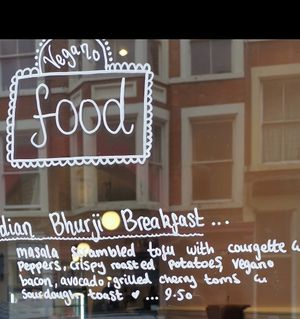 Vegano
food
dian Bhurji Breakfast ...
masala scrambled tofu with courgette &
Peppers, crispy roasted potatoes, vegano
bacon, avocado, grilled cherry toms &
Sourdough toast ♥ ... 9.50